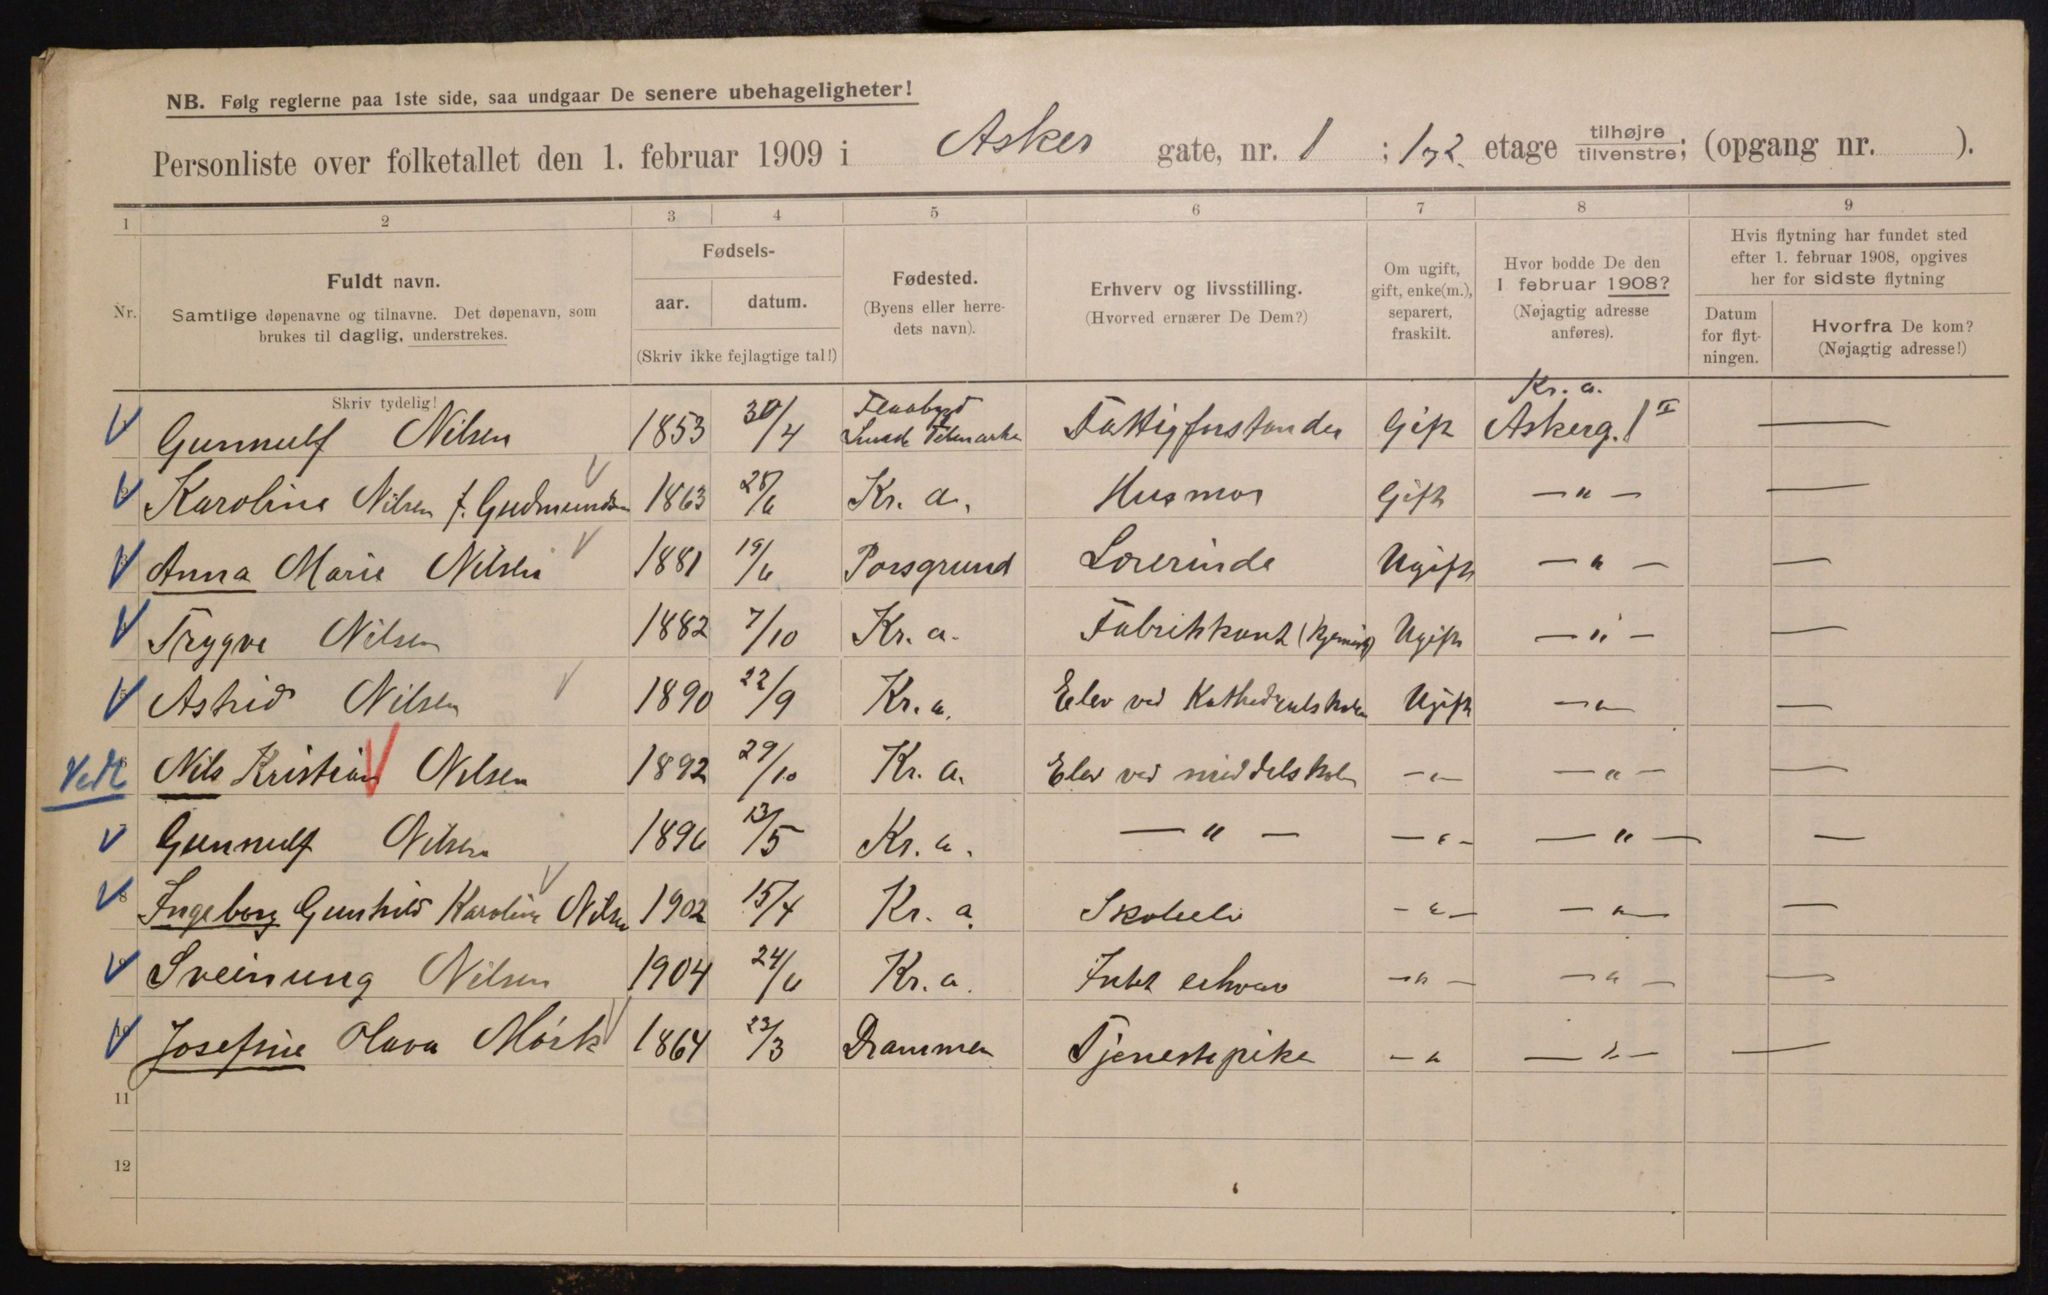 NB. Følg reglerne paa 1ste side, saa undgaar De senere ubehageligheter!
Personliste over folketallet den 1. februar 1909 i Asker gate, nr. 1 ; 1 og 2. etage tilhøjre/tilvenstre; (opgang nr. ).
1 2 3 4 5 6 7 8 9
Nr.
Fuldt navn.
Samtlige døpenavne og tilnavne. Det døpenavn, som
brukes til daglig, understrekes.
Skriv tydelig!
Fødsels-
aar. datum.
(Skriv ikke fejlagtige tal!)
Fødested.
(Byens eller herre-
dets navn).
Erhverv og livsstilling.
(Hvorved ernærer De Dem?)
Om ugift,
gift, enke(m.),
separert,
fraskilt.
Hvor bodde De den
1 februar 1908?
(Nøjagtig adresse
anføres).
Hvis flytning har fundet sted
efter 1. februar 1908, opgives
her for sidste flytning
Datum
for flyt-
ningen.
Hvorfra De kom?
(Nøjagtig adresse!)
Gunnulf Nilsen 1853 30/4 Flaabygd Fattigforstander Gift Kr. a. Askerg. 1 II —
2 Karoline Nilsen f. Gudmundsen 1863 28/6 Kr. a. Husmor Gift — " — —
3 Anna Marie Nilsen 1881 19/6 Porsgrund Lærerinde Ugift — " — —
Trygve Nilsen 1882 7/10 Kr. a. Fabrikkont Ugift — " — —
5 Astrid Nilsen 1890 22/9 Kr. a. Elev ved Kathedralskolen Ugift — " — —
Vedl. 6 Nils Kristian Nilsen 1892 29/10 Kr. a. Elev ved middelskolen — " — — " — —
7 Gunnulf Nilsen 1896 13/5 Kr. a. — " — — " — — " — —
8 Ingeborg Gunhild Karoline Nilsen 1902 15/4 Kr. a. Skoleelev — " — — " — —
9 Sveinung Nilsen 1904 24/6 Kr. a. Intet erhverv — " — — " — —
10 Josefine Olava Mörk 1864 23/3 Drammen Tjenestepike — " — " — —
11
12